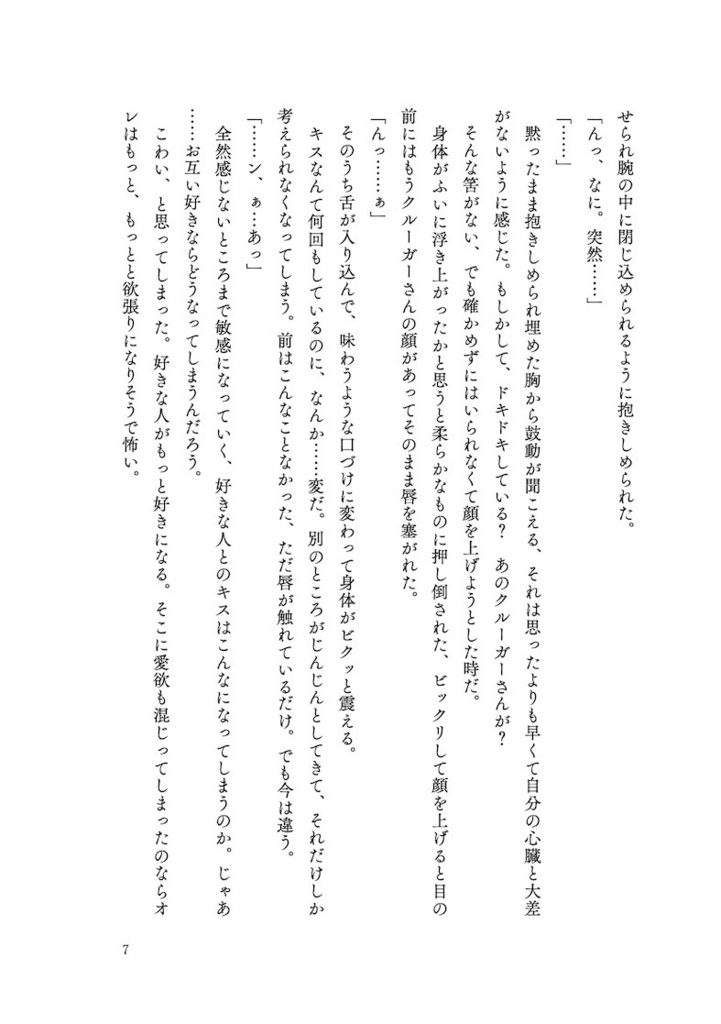 せられ腕の中に閉じ込められるように抱きしめられた。
「んっ、なに。突然……」
「……」
　黙ったまま抱きしめられ埋めた胸から鼓動が聞こえる、それは思ったよりも早くて自分の心臓と大差
がないように感じた。もしかして、ドキドキしている？　あのクルーガーさんが？
　そんな筈がない、でも確かめずにはいられなくて顔を上げようとした時だ。
　身体がふいに浮き上がったかと思うと柔らかなものに押し倒された、ビックリして顔を上げると目の
前にはもうクルーガーさんの顔があってそのまま唇を塞がれた。
「んっ……ぁ」
　そのうち舌が入り込んで、味わうような口づけに変わって身体がビクッと震える。
　キスなんて何回もしているのに、なんか……変だ。別のところがじんじんとしてきて、それだけしか
考えられなくなってしまう。前はこんなことなかった、ただ唇が触れているだけ。でも今は違う。
「……ン、ぁ…あっ」
　全然感じないところまで敏感になっていく、好きな人とのキスはこんなになってしまうのか。じゃあ
……お互い好きならどうなってしまうんだろう。
　こわい、と思ってしまった。好きな人がもっと好きになる。そこに愛欲も混じってしまったのならオ
レはもっと、もっとと欲張りになりそうで怖い。
7